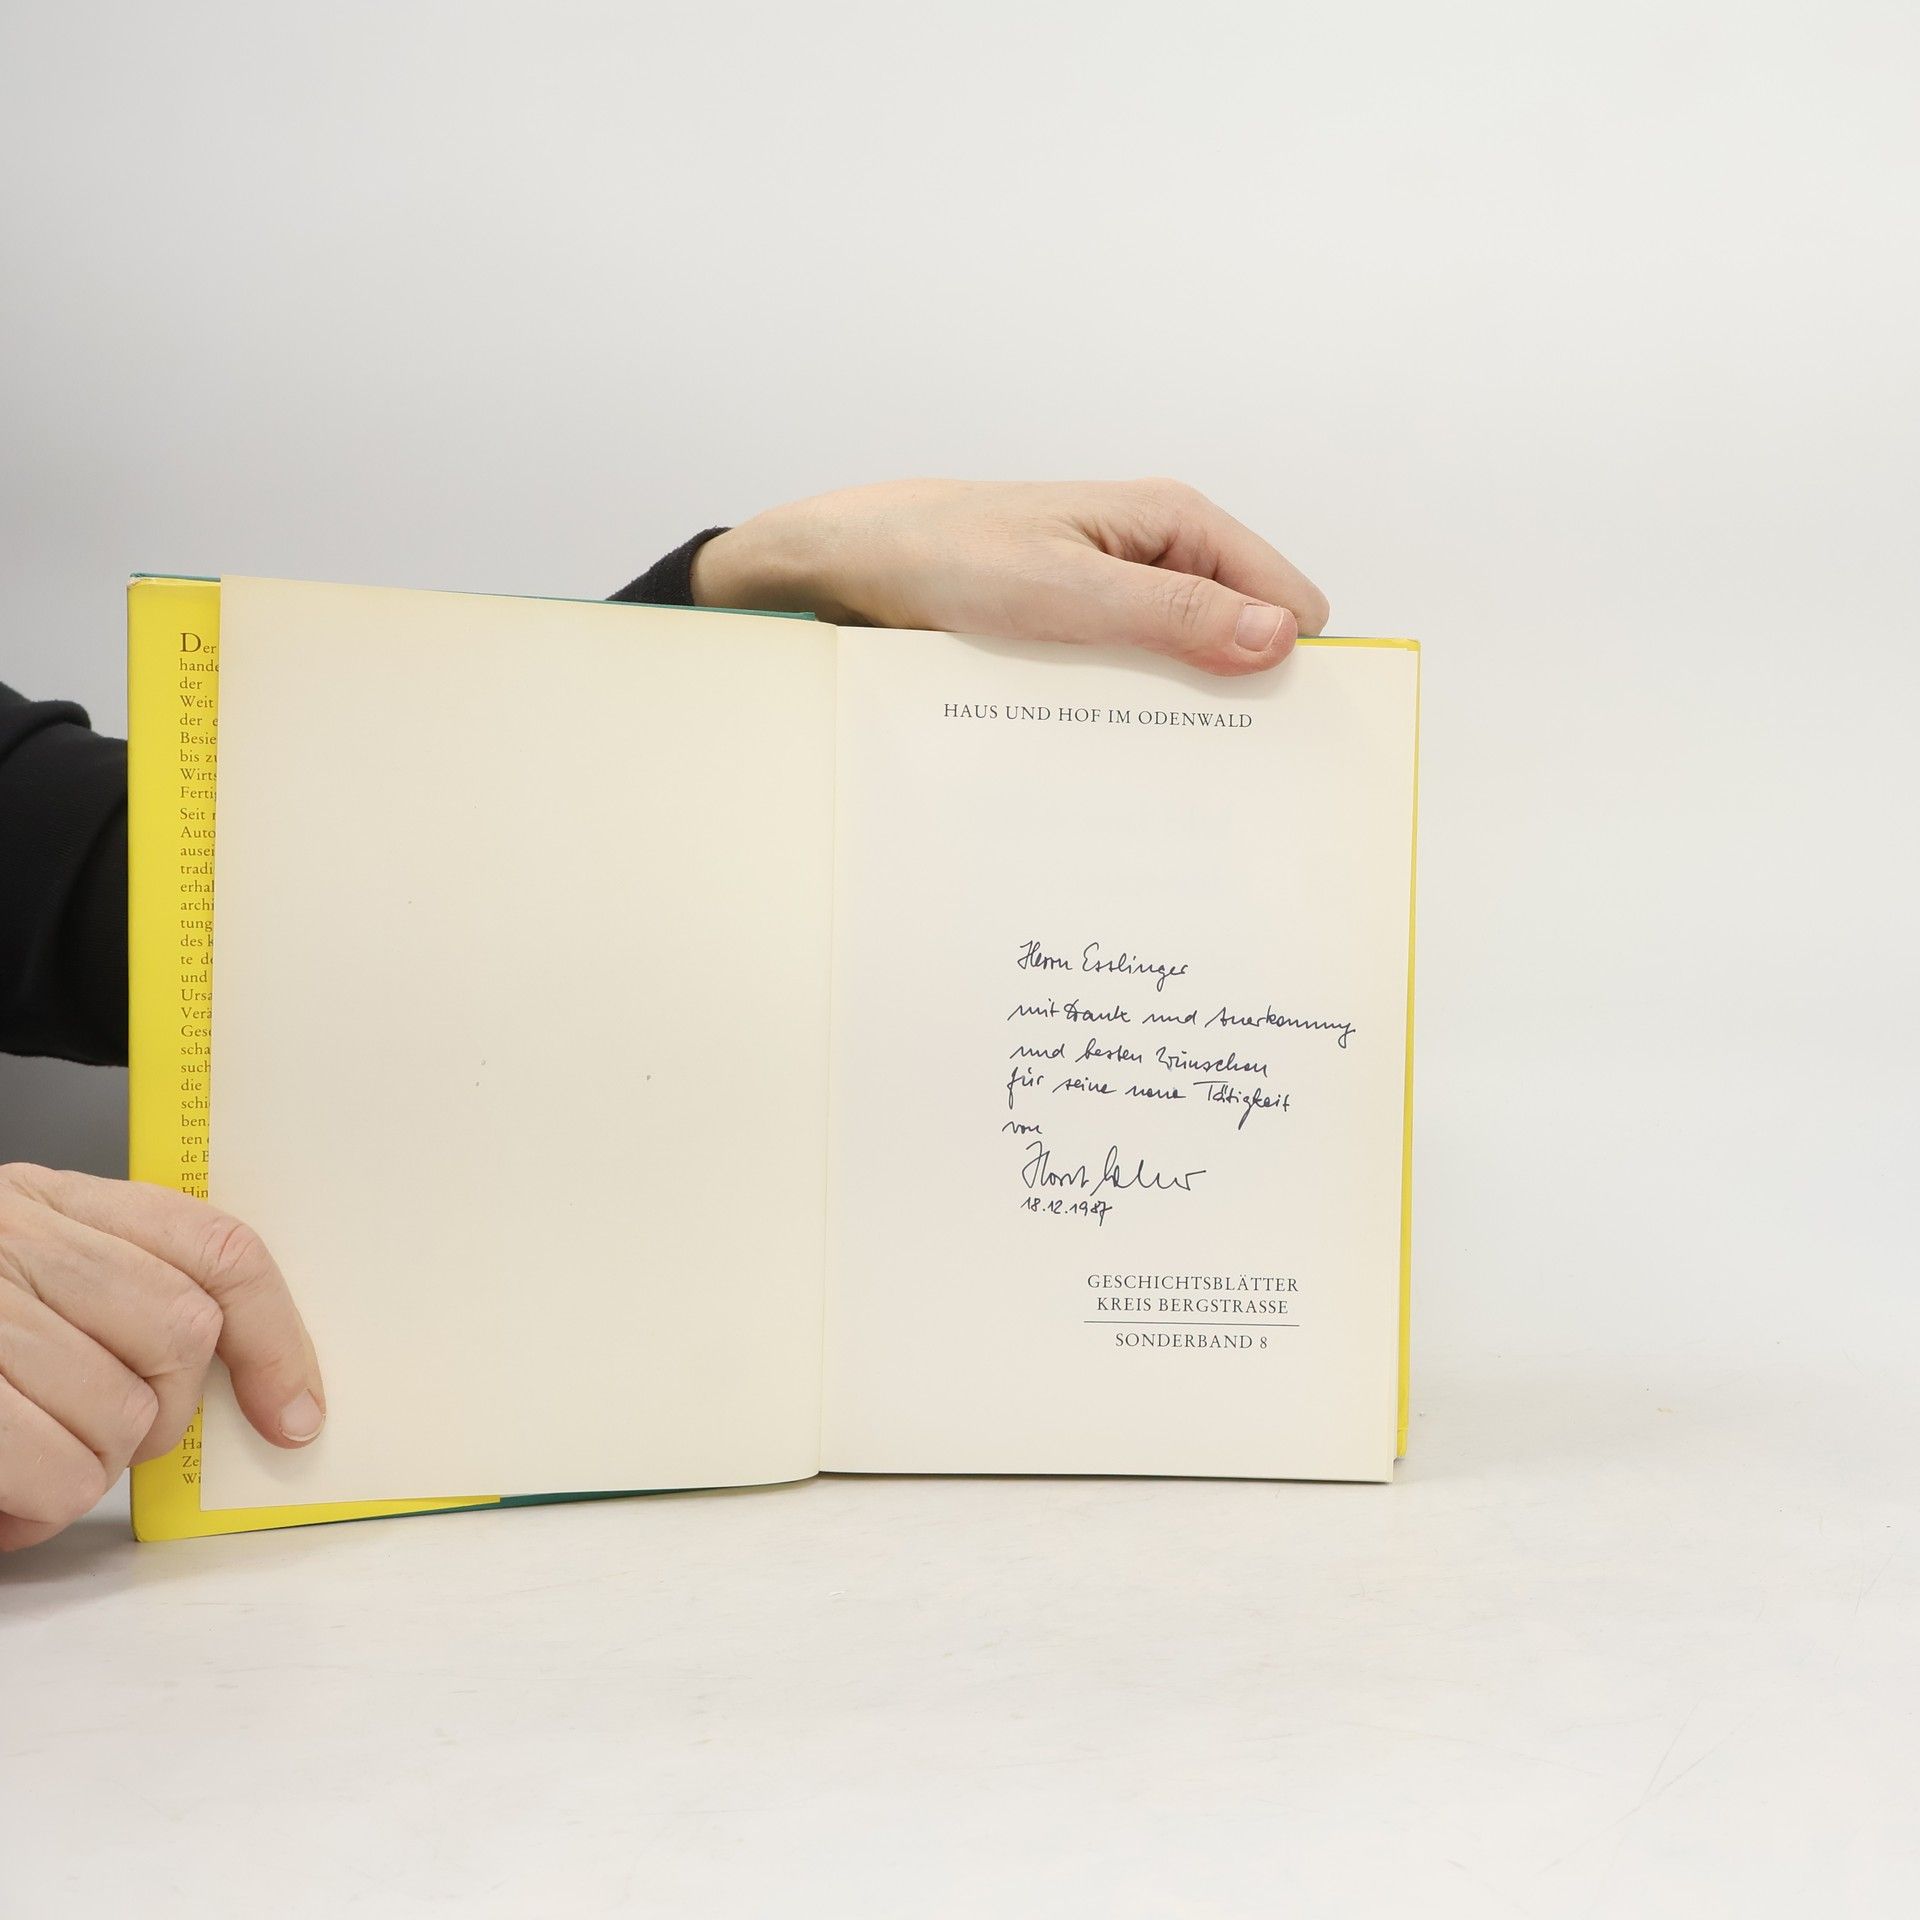 Der
hande
der
Weit
der e
Besie
bis zu
Wirts
Fertig
Seit
Auto
ausei
tradi
erhal
archi
tung
des k
te de
und
Ursa
Verä
Gesc
scha
such
die
schi
ben.
ten
de B
mer
Hin
Ha
Ze
Wi
HAUS UND HOF IM ODENWALD
Herrn Esslinger
mit Dank und Anerkennung
und besten Wünschen
für seine neue Tätigkeit
von
Horst
18.12.1987
GESCHICHTSBLÄTTER
KREIS BERGSTRASSE
SONDERBAND 8